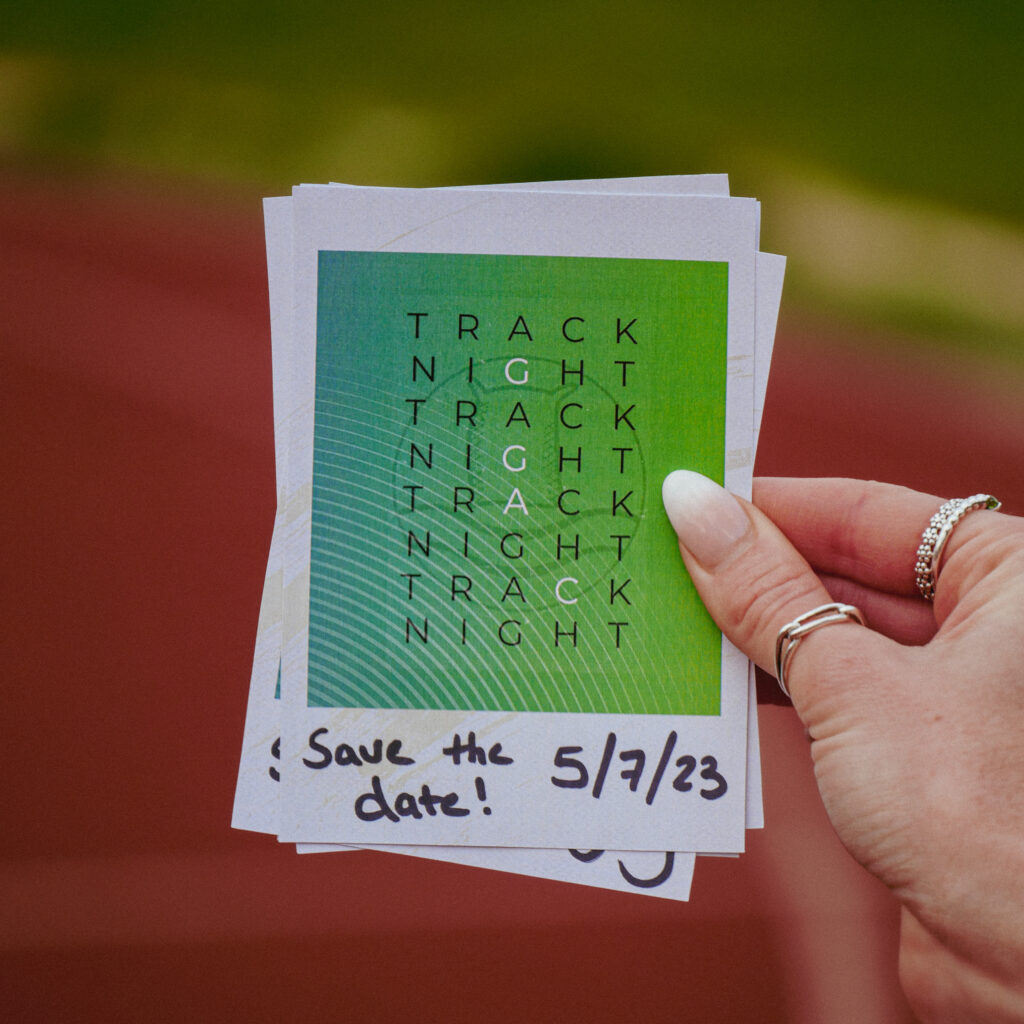 TRACK
NIGHT
TRACK
NIGHT
TRACK
NIGHT
TRACK
NIGHT
Save the
date!
5/7/23